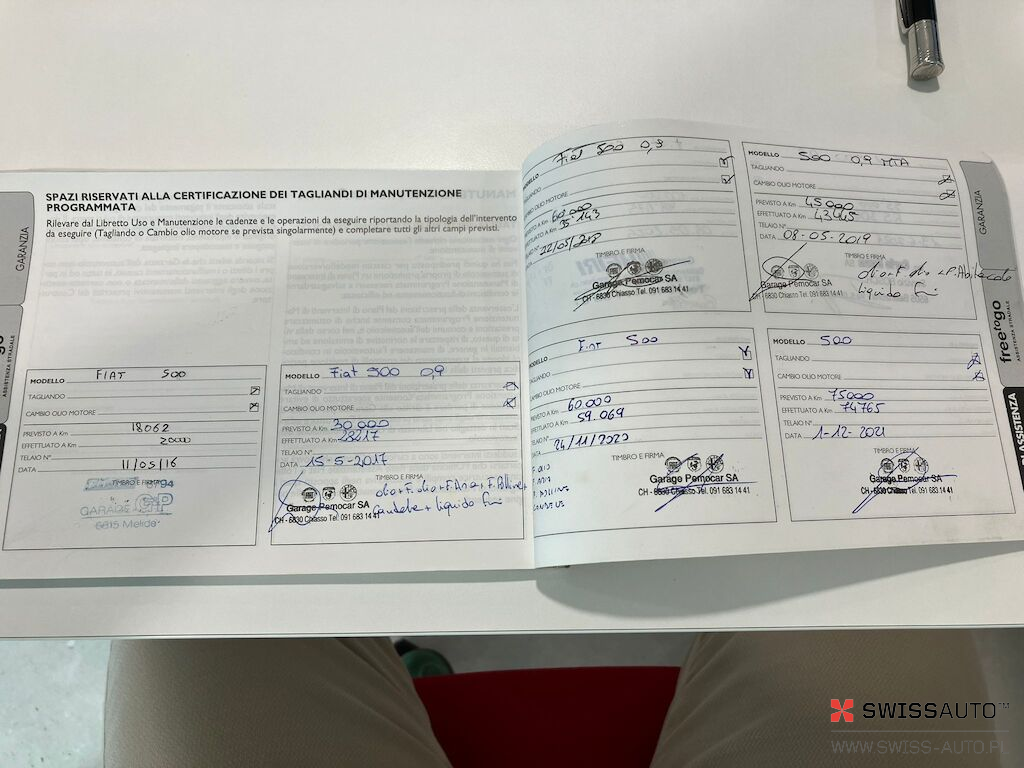 GARANZIA
ASSISTENZA STRADALE
SPAZI RISERVATI ALLA CERTIFICAZIONE DEI TAGLIANDI DI MANUTENZIONE
PROGRAMMATA
Rilevare dal Libretto Uso e Manutenzione le cadenze e le operazioni da eseguire riportando la tipologia dell'intervento
da eseguire (Tagliando o Cambio olio motore se prevista singolarmente) e completare tutti gli altri campi previsti.
MODELLO FIAT 500
TAGLIANDO
CAMBIO OLIO MOTORE
PREVISTO A Km 18062
EFFETTUATO A Km
TELAIO N°
DATA 11/05/16
TIMBRO E FIRMA
GARAGE
6815 Melide
MODELLO Fiat 500 0,9
TAGLIANDO
CAMBIO OLIO MOTORE
PREVISTO A Km 30000
EFFETTUATO A Km 28217
TELAIO N°
DATA 15-5-2017
TIMBRO E FIRMA
Garage Pemocar SA
CH - 6830 Chiasso Tel. 091 683 14 41
Candele + liquido
Fiat 500 0,9
TAGLIANDO
CAMBIO OLIO MOTORE
PREVISTO A Km 60000
EFFETTUATO A Km 35143
TELAIO N°
22/05/2018
TIMBRO E FIRMA
Garage Pemocar SA
CH - 6830 Chiasso Tel. 091 683 14 41
MODELLO 500 0,9 MTA
TAGLIANDO
CAMBIO OLIO MOTORE
PREVISTO A Km 45000
EFFETTUATO A Km
TELAIO N°
DATA 08-05-2019
TIMBRO E FIRMA
Garage Pemocar SA
CH - 6830 Chiasso Tel. 091 683 14 41
liquido
MODELLO Fiat 500
TAGLIANDO
CAMBIO OLIO MOTORE
PREVISTO A Km 60.000
EFFETTUATO A Km 59.069
TELAIO N°
24/11/2020
TIMBRO E FIRMA
Garage Pemocar SA
CH - 6830 Chiasso Tel. 091 683 14 41
MODELLO 500
TAGLIANDO
CAMBIO OLIO MOTORE
PREVISTO A Km 75000
EFFETTUATO A Km 74765
TELAIO N°
DATA 1-12-2021
TIMBRO E FIRMA
Garage Pemocar SA
CH - 6830 Chiasso Tel. 091 683 14 41
GARANZIA
freetogo
ASSISTENZA STRADALE
ASSISTENZA
SWISSAUTO™
WWW.SWISS-AUTO.PL